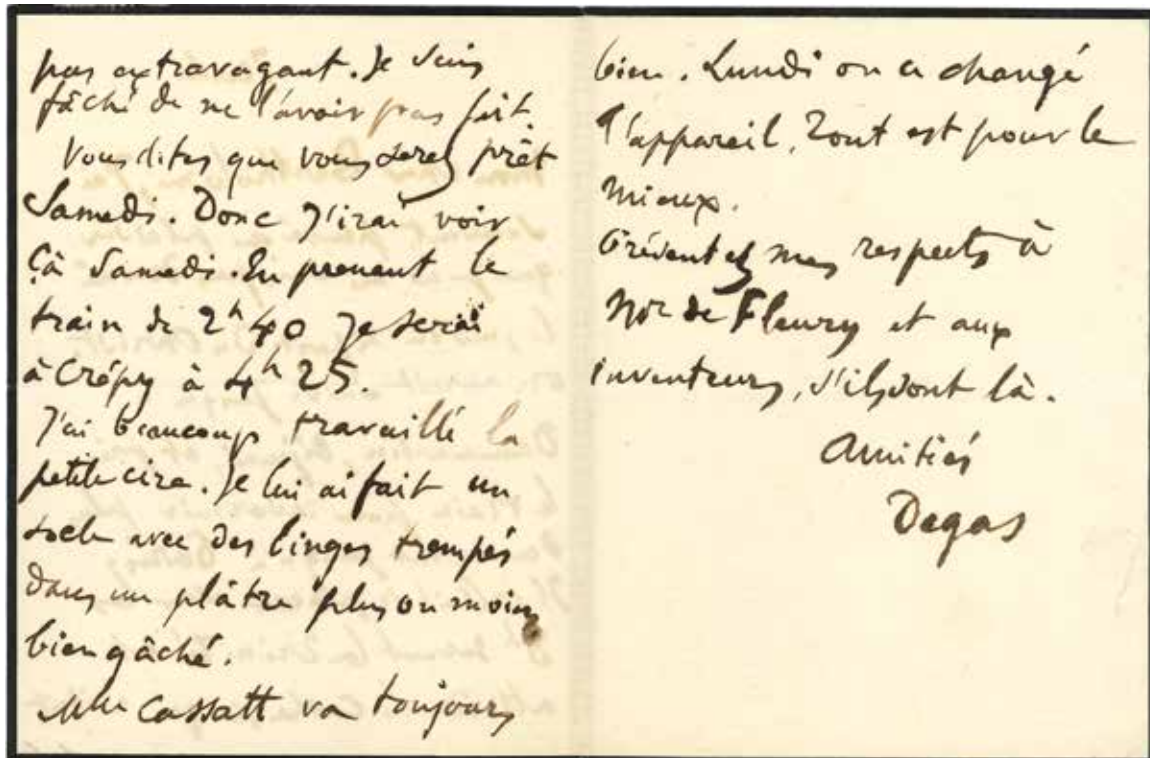 pas extravagant. Je suis
fâché de ne l'avoir pas fait.
Vous dites que vous serez prêt
Samedi. Donc j'irai voir
çà Samedi. En prenant le
train de 2h 40 je serai
à Crépy à 4h 25.
J'ai beaucoup travaillé la
petite cire. Je lui ai fait un
socle avec des linges trempés
dans un plâtre plus ou moins
bien gâché.
Mlle Cassatt va toujours
bien. Lundi on a changé
l'appareil, Tout est pour le
mieux.
Présentez mes respects à
de Fleury et aux
inventeurs, s'ils sont là.
Amitiés
Degas